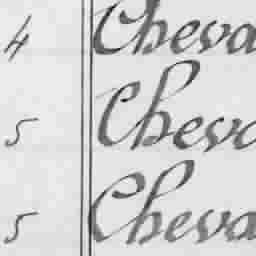 4 Cheva
5 Cheva
5 Cheva